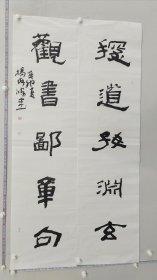 探道好淵玄
觀書鄙章句